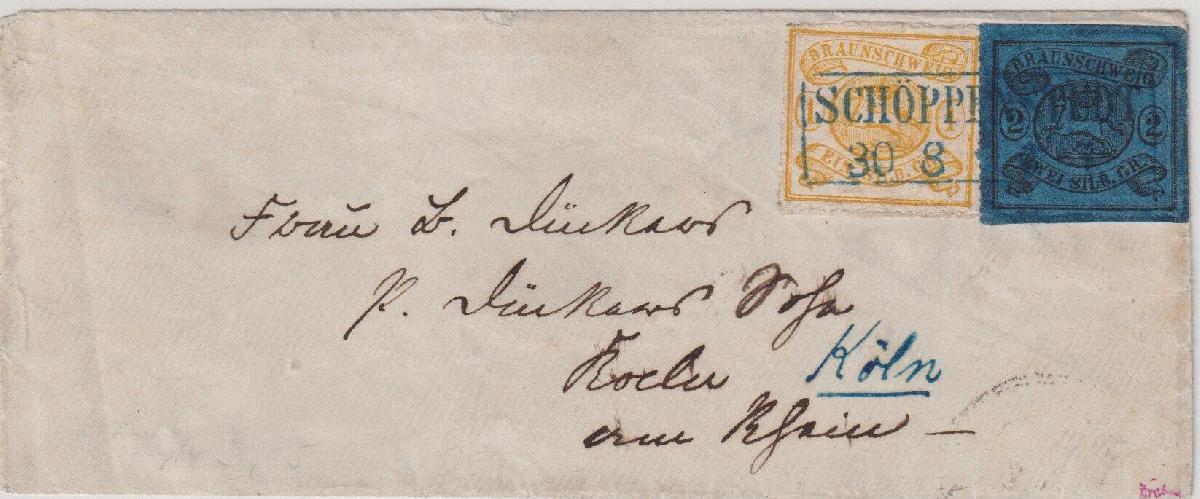 BRAUNSCHWEIG
SCHÖPPENSTEDT
30 8
1
BRAUNSCHWEIG
2 2
ZWEI SILB. GR.
Frau B. Dünkaws
P. Dünkaws Sohn
Koeln Köln
am Rhein